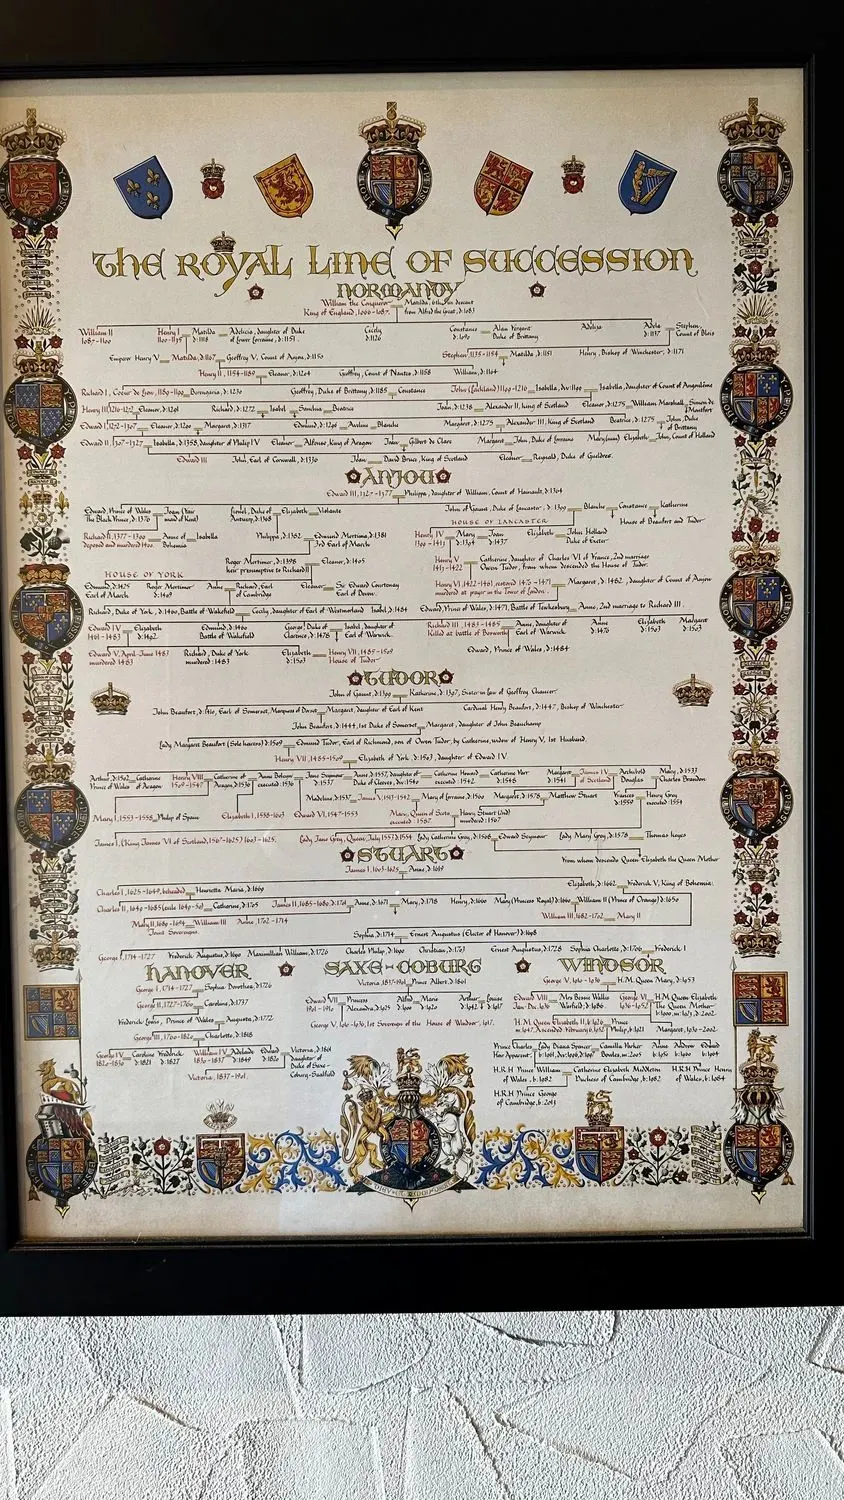 THE ROYAL LINE OF SUCCESSION
NORMANDY
William the Conqueror Matilda, 6th in descent
King of England, 1066-1087. from Alfred the Great, d:1083
William II Henry I Matilda Adelicia, daughter of Duke Cecily Constance Alan Fergant Adeliza Adela Stephen,
1087-1100 1100-1135 d:1118 of Lower Lorraine, d:1151. d:1126 d:1090 Duke of Brittany d:1137 Count of Blois
Emperor Henry V Matilda, d:1167 Geoffrey V, Count of Anjou, d:1150 Stephen, 1135-1154 Matilda, d:1151 Henry, Bishop of Winchester, d:1171
Henry II, 1154-1189 Eleanor, d:1204 Geoffrey, Count of Nantes, d:1158 William, d:1164
Richard I, Coeur de Lion, 1189-1199 Berengaria, d:1230 Geoffrey, Duke of Brittany, d:1185 Constance John (Lackland) 1199-1216 Isabella, div:1199 Isabella, daughter of Count of Angoulême
Henry III, 1216-1272 Eleanor, d:1291 Richard, d:1272 Isabel Sanchia Beatrice Joan, d:1238 Alexander II, King of Scotland Eleanor, d:1275 William Marshall Simon de Montfort
Edward I, 1272-1307 Eleanor, d:1290 Margaret, d:1317 Edmund, d:1296 Aveline Blanche Margaret, d:1275 Alexander III, King of Scotland Beatrice, d:1275 John, Duke of Brittany
Edward II, 1307-1327 Isabella, d:1358, daughter of Philip IV Eleanor Alfonso, King of Aragon Joan Gilbert de Clare Margaret John, Duke of Lorraine Mary (nun) Elizabeth John, Count of Holland
Edward III John, Earl of Cornwall, d:1336 Joan David Bruce, King of Scotland Eleanor Reynald, Duke of Gueldres.
ANJOU
Edward III, 1327-1377 Philippa, daughter of William, Count of Hainault, d:1369
Edward, Prince of Wales Joan (Fair Lionel, Duke of Elizabeth Violante John of Gaunt, Duke of Lancaster, d:1399 Blanche Constance Katherine
The Black Prince, d:1376 maid of Kent) Antwerp, d:1368 HOUSE OF LANCASTER House of Beaufort and Tudor
Richard II, 1377-1399 Anne of Isabella Philippa, d:1382 Edmund Mortimer, d:1381 Henry IV Mary Joan Elizabeth John Holland
deposed and murdered 1400. Bohemia 3rd Earl of March 1399-1413 d:1394 d:1437 Duke of Exeter
Roger Mortimer, d:1398 Eleanor, d:1405 Henry V Catherine, daughter of Charles VI of France, 2nd marriage
heir presumptive to Richard II 1413-1422 Owen Tudor, from whom descended the House of Tudor.
HOUSE OF YORK
Edmund, d:1425 Roger Mortimer Anne Richard, Earl Eleanor Sir Edward Courtenay Henry VI, 1422-1461, restored 1470-1471 Margaret, d:1482, daughter of Count of Anjou
Earl of March d:1409 of Cambridge Earl of Devon. murdered at prayer in the Tower of London.
Richard, Duke of York, d:1460, Battle of Wakefield Cecily, daughter of Earl of Westmorland Isabel, d:1484 Edward, Prince of Wales, d:1471, Battle of Tewkesbury Anne, 2nd marriage to Richard III.
Edward IV Elizabeth Edmund, d:1460 George, Duke of Isabel, daughter of Richard III, 1483-1485 Anne, daughter of Anne Elizabeth Margaret
1461-1483 d:1492 Battle of Wakefield Clarence, d:1478 Earl of Warwick. Killed at battle of Bosworth Earl of Warwick d:1476 d:1503 d:1503
Edward V, April-June 1483 Richard, Duke of York Elizabeth Henry VII, 1485-1509 Edward, Prince of Wales, d:1484
murdered 1483 murdered:1483 d:1503 House of Tudor
TUDOR
John of Gaunt, d:1399 Katharine, d:1397, Sister in law of Geoffrey Chaucer.
John Beaufort, d:1410, Earl of Somerset, Marquess of Dorset Margaret, daughter of Earl of Kent Cardinal Henry Beaufort, d:1447, Bishop of Winchester
John Beaufort, d:1444, 1st Duke of Somerset Margaret, daughter of John Beauchamp
Lady Margaret Beaufort (Sole heiress) d:1509 Edmund Tudor, Earl of Richmond, son of Owen Tudor, by Catherine, widow of Henry V, 1st Husband.
Henry VII, 1485-1509 Elizabeth of York, d:1503, daughter of Edward IV
Arthur, d:1502 Catherine Henry VIII Catherine of Anne Boleyn Jane Seymour Anne, d:1557, daughter of Catherine Howard Catherine Parr Margaret James IV Archibald Mary, d:1533
Prince of Wales of Aragon 1509-1547 Aragon, d:1536 executed:1536 d:1537 Duke of Cleves, div:1540 executed:1542 d:1548 d:1541 of Scotland Douglas Charles Brandon
Madeleine, d:1537 James V, 1513-1542 Mary of Lorraine, d:1560 Margaret, d:1578 Matthew Stuart Frances Henry Grey
d:1559 executed:1554
Mary I, 1553-1558 Philip of Spain Elizabeth I, 1558-1603 Edward VI, 1547-1553 Mary, Queen of Scots Henry Stuart
executed:1587 murdered:1567
James I, (King James VI of Scotland, 1567-1625) 1603-1625. Lady Jane Grey, Queen, July 1553 Lady Catherine Grey, d:1568 Edward Seymour Lady Mary Grey, d:1578 Thomas Keyes
STUART
from whom descends Queen Elizabeth the Queen Mother
James I, 1603-1625 Anne, d:1619
Charles I, 1625-1649, beheaded Henrietta Maria, d:1669 Elizabeth, d:1662 Frederick V, King of Bohemia.
Charles II, 1649-1685 (exile 1649-60) Catherine, d:1705 James II, 1685-1688, d:1701 Anne, d:1671 Mary, d:1718 Henry, d:1660 Mary (Princess Royal) d:1660 William II (Prince of Orange) d:1650
Mary II, 1689-1694 William III Anne, 1702-1714 William III, 1682-1702 Mary II
Joint Sovereigns
Sophia, d:1714 Ernest Augustus (Elector of Hanover) d:1698
George I, 1714-1727 Frederick Augustus, d:1690 Maximilian William, d:1726 Charles Philip, d:1690 Christian, d:1703 Ernest Augustus, d:1728 Sophia Charlotte, d:1705 Frederick I
HANOVER SAXE-COBURG WINDSOR
George I, 1714-1727 Sophia Dorothea, d:1726 Victoria, 1837-1901 Prince Albert, d:1861 George V, 1910-1936 H.M. Queen Mary, d:1953
George II, 1727-1760 Caroline, d:1737 Edward VII Princess Alfred Marie Arthur Louise Edward VIII Mrs Bessie Wallis George VI H.M. Queen Elizabeth
1901-1910 Alexandra, d:1925 d:1900 d:1920 d:1942 d:1917 Jan-Dec, 1936 Warfield, d:1986 1936-1952 The Queen Mother
Frederick Louis, Prince of Wales Augusta, d:1772 George V, 1910-1936, 1st Sovereign of the House of Windsor, 1917. b:1900, m:1923, d:2002.
George III, 1760-1820 Charlotte, d:1818 H.M. Queen Elizabeth II, b:1926 Prince Margaret, 1930-2002
m:1947, Ascended February 6, 1952 Philip, b:1921
George IV Caroline Frederick William IV Adelaide Edward Victoria, d:1861 Prince Charles Lady Diana Spencer Camilla Parker Anne Andrew Edward
1820-1830 d:1821 d:1827 1830-1837 d:1849 d:1820 daughter of Heir Apparent Bowles, m:2005 b:1950 b:1960 b:1964
Duke of Saxe-
Coburg-Saalfeld
Victoria, 1837-1901. H.R.H Prince William Catherine Elizabeth Middleton H.R.H Prince Henry
of Wales, b:1982 Duchess of Cambridge, b:1982 of Wales, b:1984
H.R.H Prince George
of Cambridge, b:2013